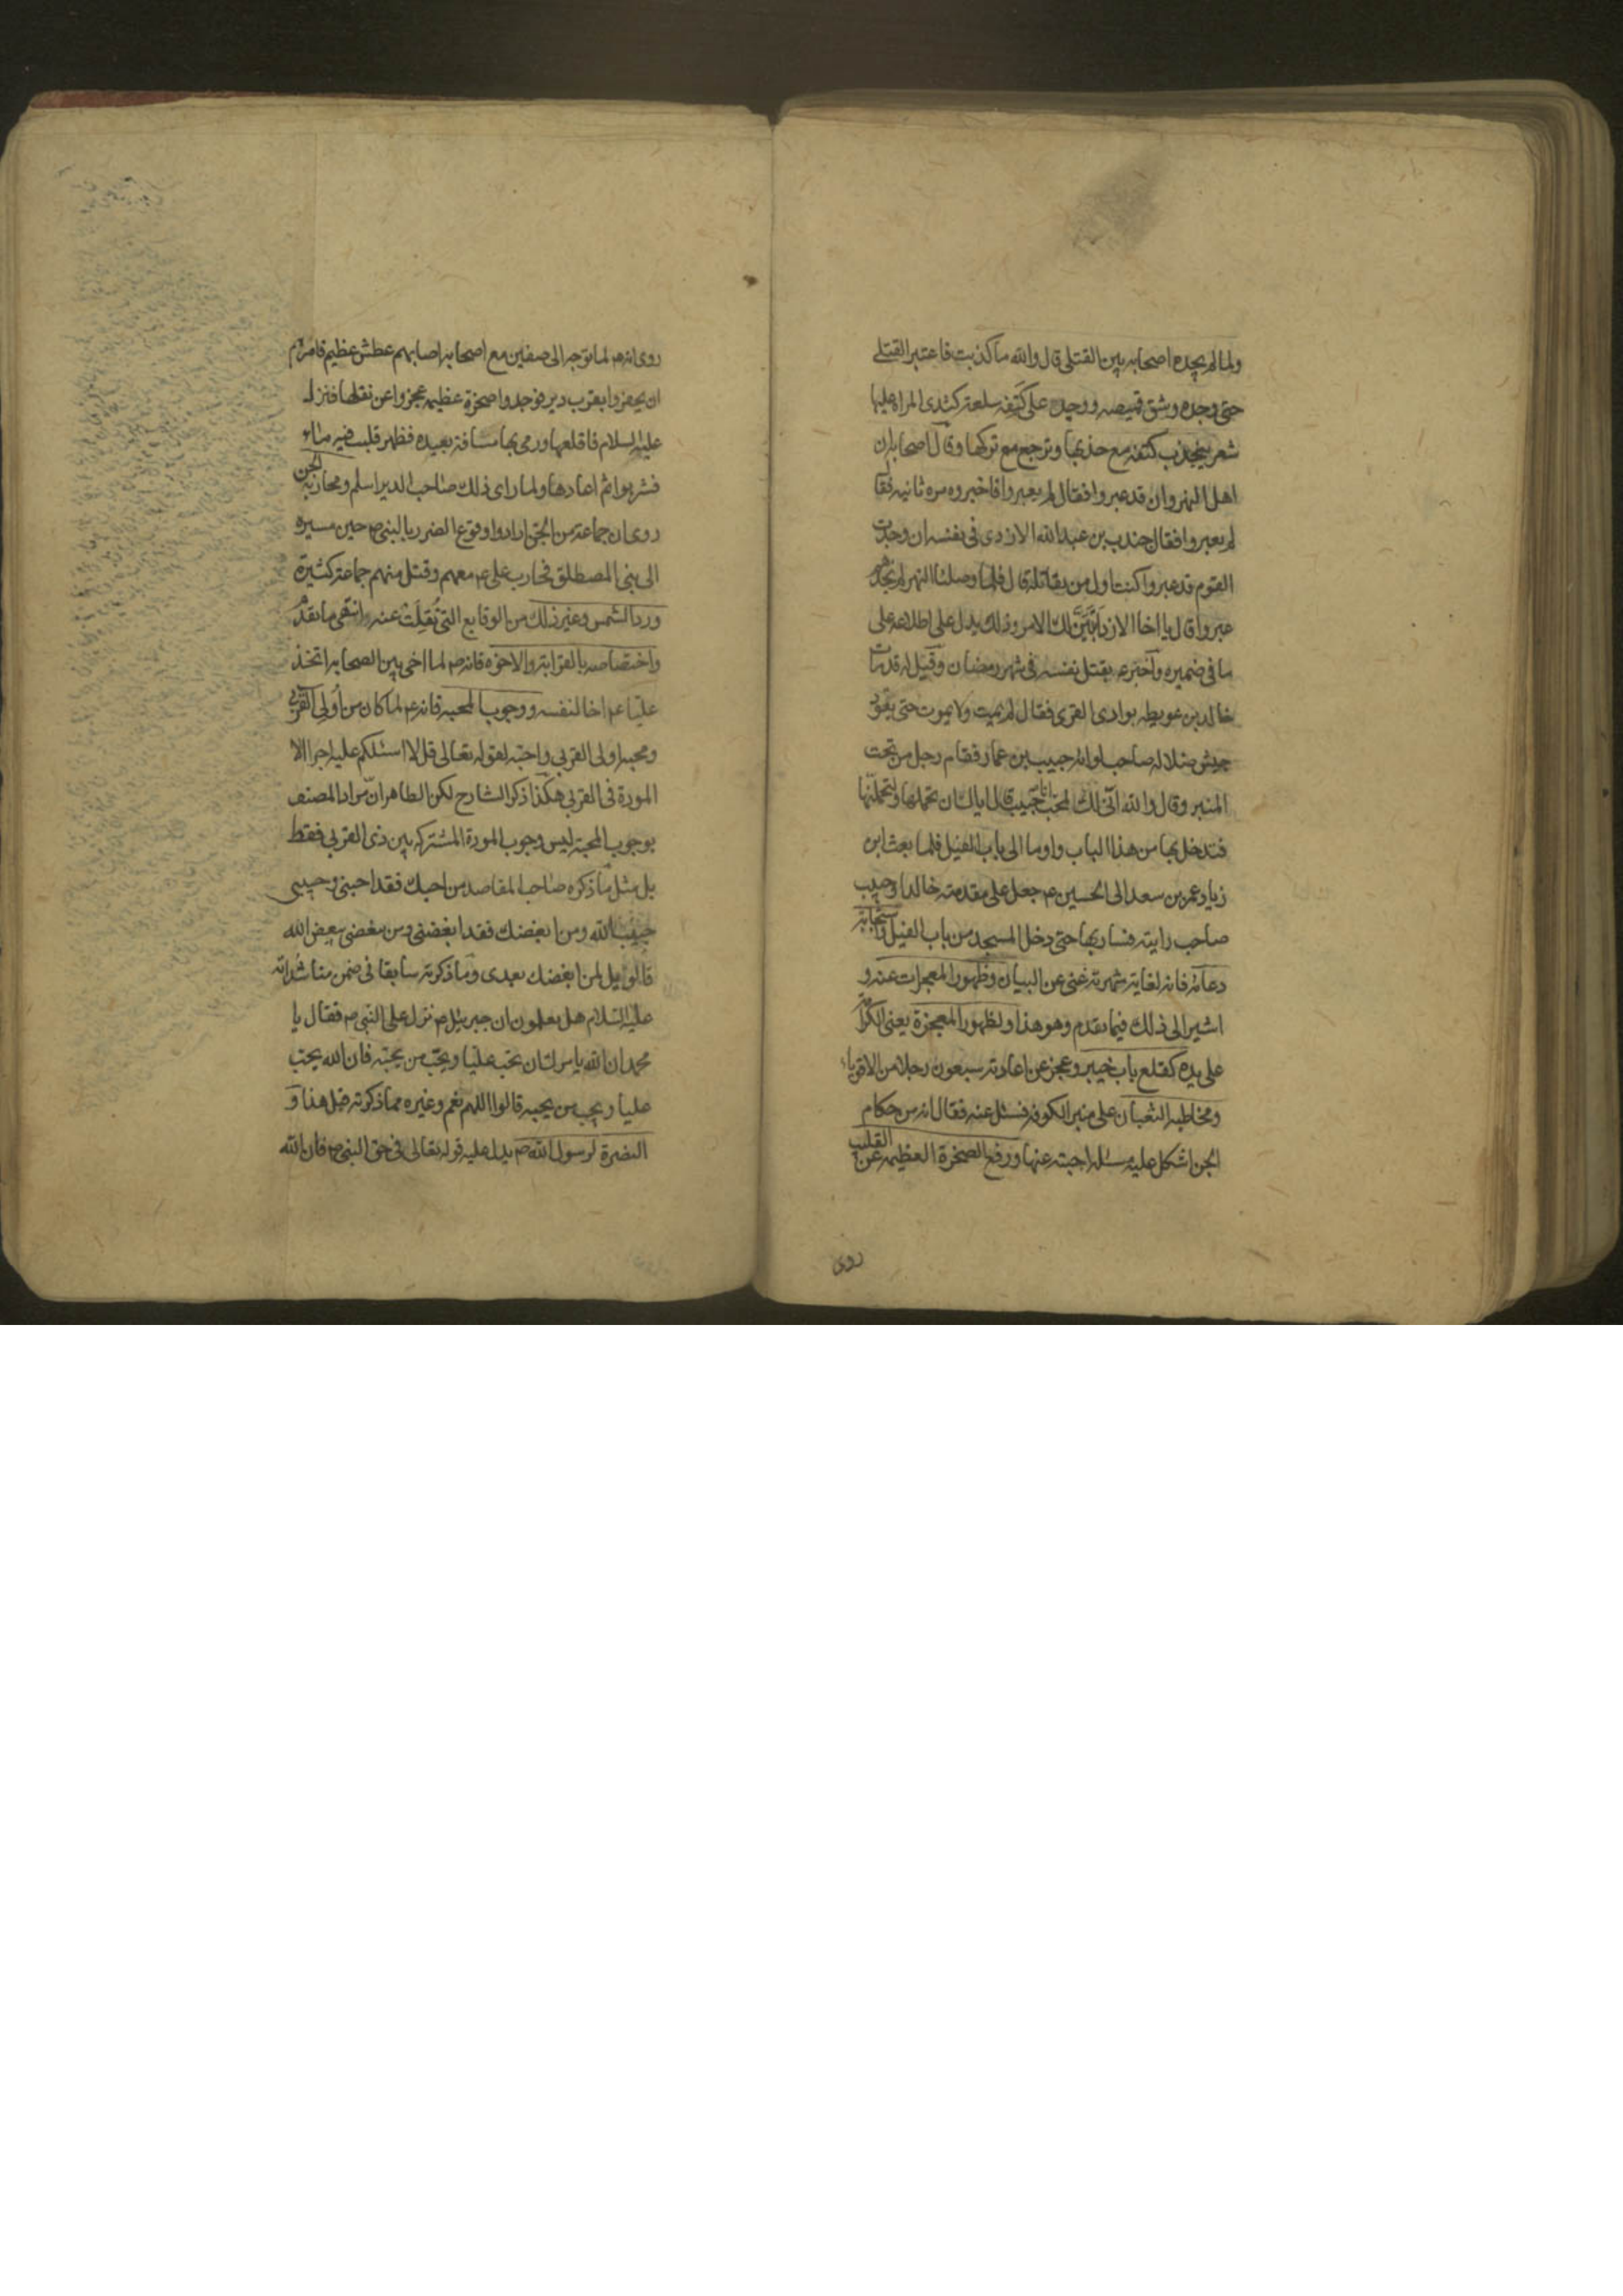 ولما لم يجده اصحابه بين القتلى قال والله ما كذبت فاعتبر القتلى
حتى وجده وشق قميصه ووجد على كتفه سلعة كثدى المراة عليها
شعر ينجذب كتفه مع جذبها وترجع مع تركها وقال اصحابه ان
اهل النهروان قد عبروا فقال لم يعبروا فاخبروه مرة ثانيه فقال
لم يعبروا فقال جندب بن عبد الله الازدى فى نفسه ان وجدت
القوم قد عبروا كنت اول من يقاتله قال فلما وصلنا النهر لم نجدهم
عبروا قال يا اخا الازد اتبين لك الامر وذلك يدل على اطلاعه على
ما فى ضميره واخبر ع بقتل نفسه فى شهر رمضان وقيل له قد مات
خالد بن عويطه بوادى القرى فقال لم يمت ولا يموت حتى يقود
جيش ضلاله صاحب لوائه حبيب بن عمار فقام رجل من تحت
المنبر وقال والله انى لك لمحب وانا حبيب قال اياك ان تحملها ولتحملنها
فتدخل بها من هذا الباب واوما الى باب الفيل فلما بعث ابن
زياد عمر بن سعد الى الحسين ع جعل على مقدمته خالدا وحبيب
صاحب رايته فسار بها حتى دخل المسجد من باب الفيل واستجابة
دعائه فانه لغاية شهرته غنى عن البيان وظهور المعجزات عنه و
اشير الى ذلك فيما تقدم وهو هذا ولظهور المعجزة يعنى الكرامة
على يده كقلع باب خيبر وعجز عن اعادته سبعون رجلا من الاقوياء
ومخاطبه الثعبان على منبر الكوفه فسئل عنه فقال انه من حكام
الجن اشكل عليه مسئله اجبته عنها ورفع الصخرة العظيمه عن القليب
روى
روى انه ع لما توجه الى صفين مع اصحابه اصابهم عطش عظيم فامرهم
ان يحفروا بقرب دير فوجدوا صخرة عظيمه عجزوا عن نقلها فنزل
عليه السلام فاقلعها ورمى بها مسافة بعيده فظهر قليب فيه ماء
فشربوا ثم اعادها ولما راى ذلك صاحب الدير اسلم ومحاربة الجن
روى ان جماعة من الجن ارادوا وقوع الضرر بالنبى ص حين مسيره
الى بنى المصطلق فحارب على ع معهم وقتل منهم جماعة كثيرة
ورد الشمس وغير ذلك من الوقايع التى نقلت عنه انتهى ما تقدم
واختصاصه بالقرابة والاخوه فانه ص لما اخى بين الصحابه اتخذ
عليا ع اخا لنفسه ووجوب المحبه فانه ع لما كان من اولى القربى
ومحبه اولى القربى واجبه لقوله تعالى قل لا اسئلكم عليه اجرا الا
المودة فى القربى هكذا ذكر الشارح لكن الظاهر ان مراد المصنف
بوجوب المحبة ليس وجوب المودة المشتركه بين ذى القربى فقط
بل مثل ما ذكره صاحب المقاصد من احبك فقد احبنى وحبيبى
حبيب الله ومن ابغضك فقد ابغضنى ومن بغضنى بغيض الله
فالويل لمن ابغضك بعدى وما ذكرته سابقا فى ضمن مناشداته
عليه السلام هل تعلمون ان جبرئيل ع نزل على النبى ص فقال يا
محمد ان الله يامرك ان تحب عليا وتحب من يحبه فان الله يحب
عليا ويحب من يحبه قالوا اللهم نعم وغيره مما ذكرته قبل هذا و
النصرة لرسول الله ص يدل عليه قوله تعالى فى حق النبى ص فان الله